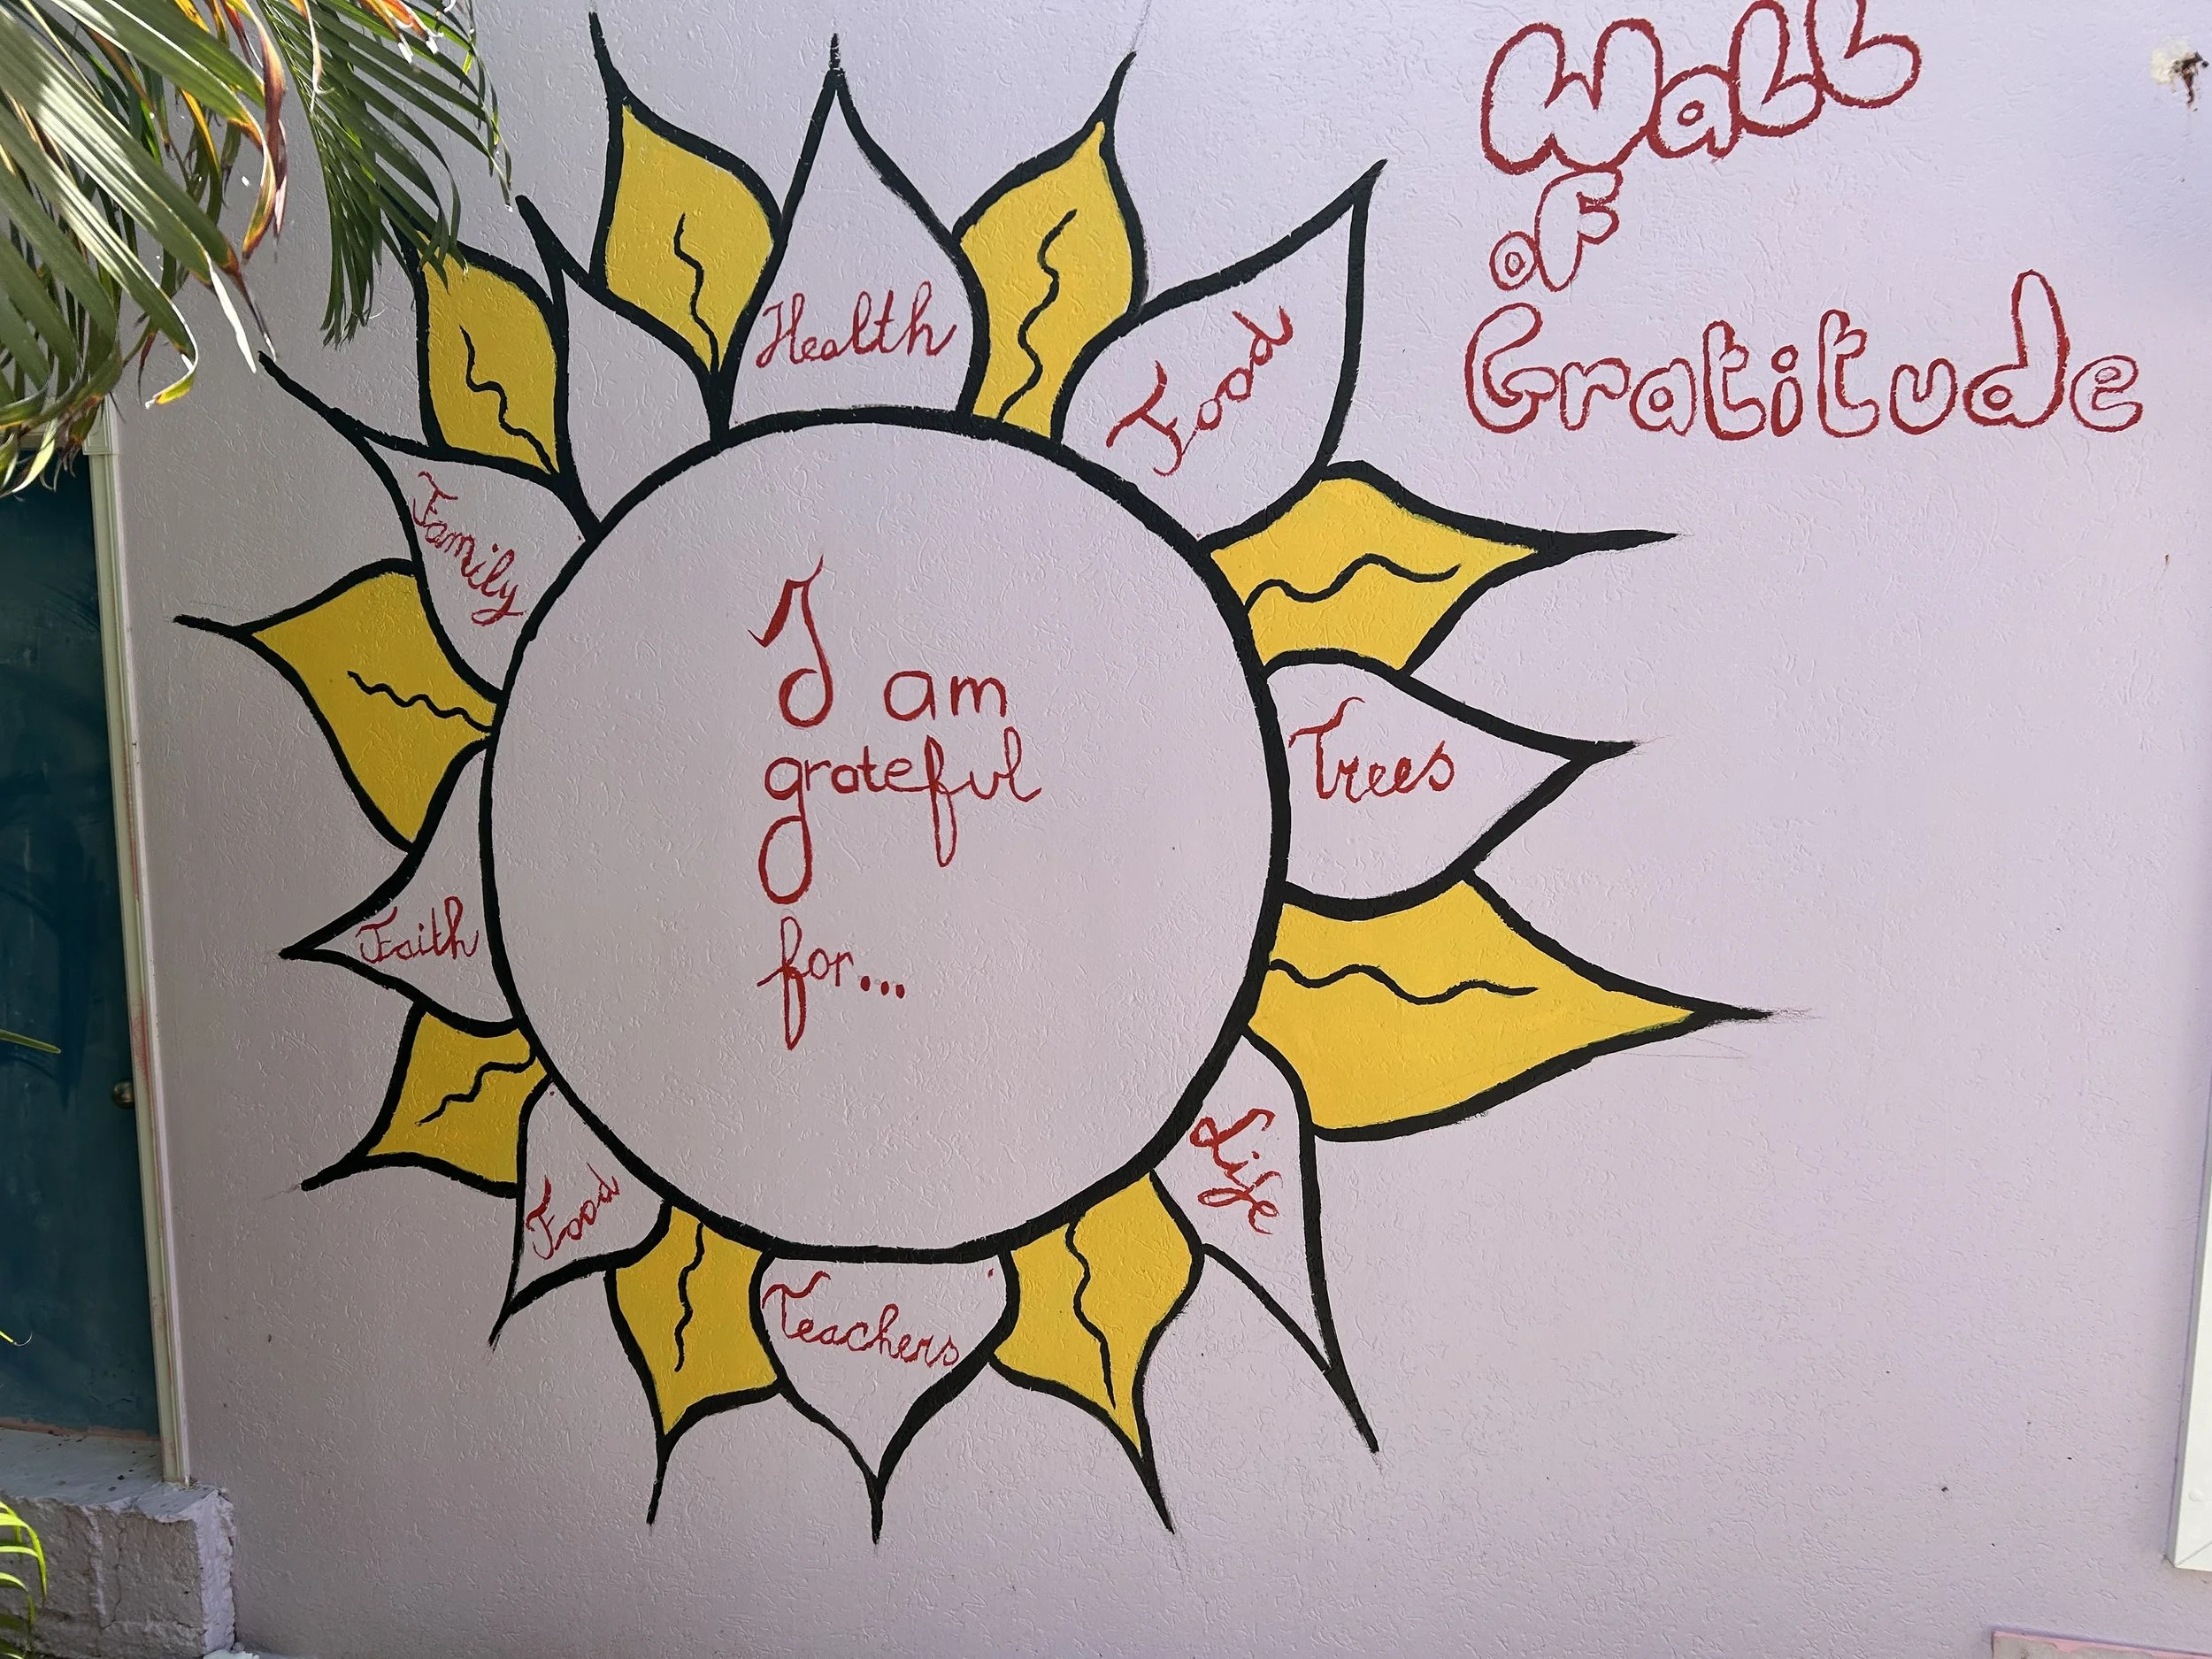 Wall
of
Gratitude
I am
grateful
for...
Health
Food
Trees
Life
Teachers
Food
Faith
Family